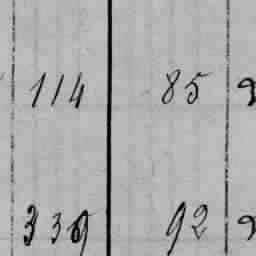 114 85
339 92